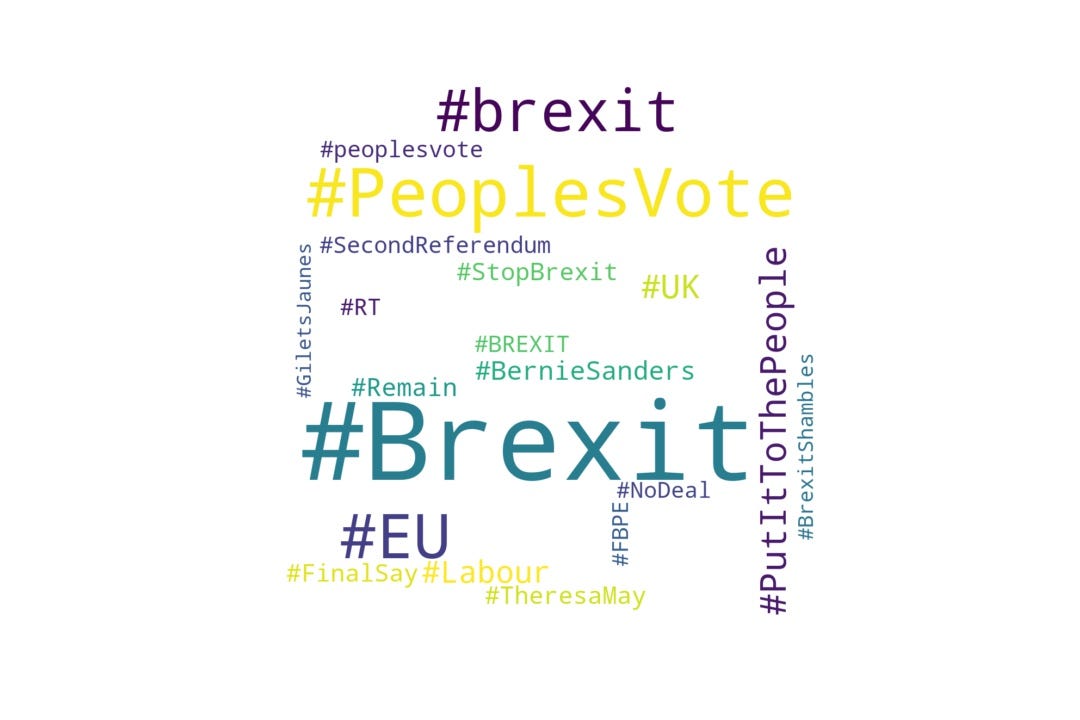 #brexit
#peoplesvote
#PeoplesVote
#SecondReferendum
#GiletsJaunes
#StopBrexit
#UK
#RT
#PutItToThePeople
#BREXIT
#BernieSanders
#Remain
#BrexitShambles
#Brexit
#NoDeal
#FBPE
#EU
#FinalSay
#Labour
#TheresaMay